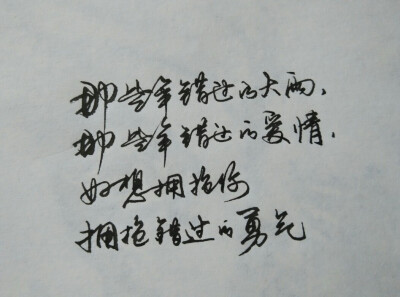 那些年错过的大雨，
那些年错过的爱情，
好想拥抱你
拥抱错过的勇气